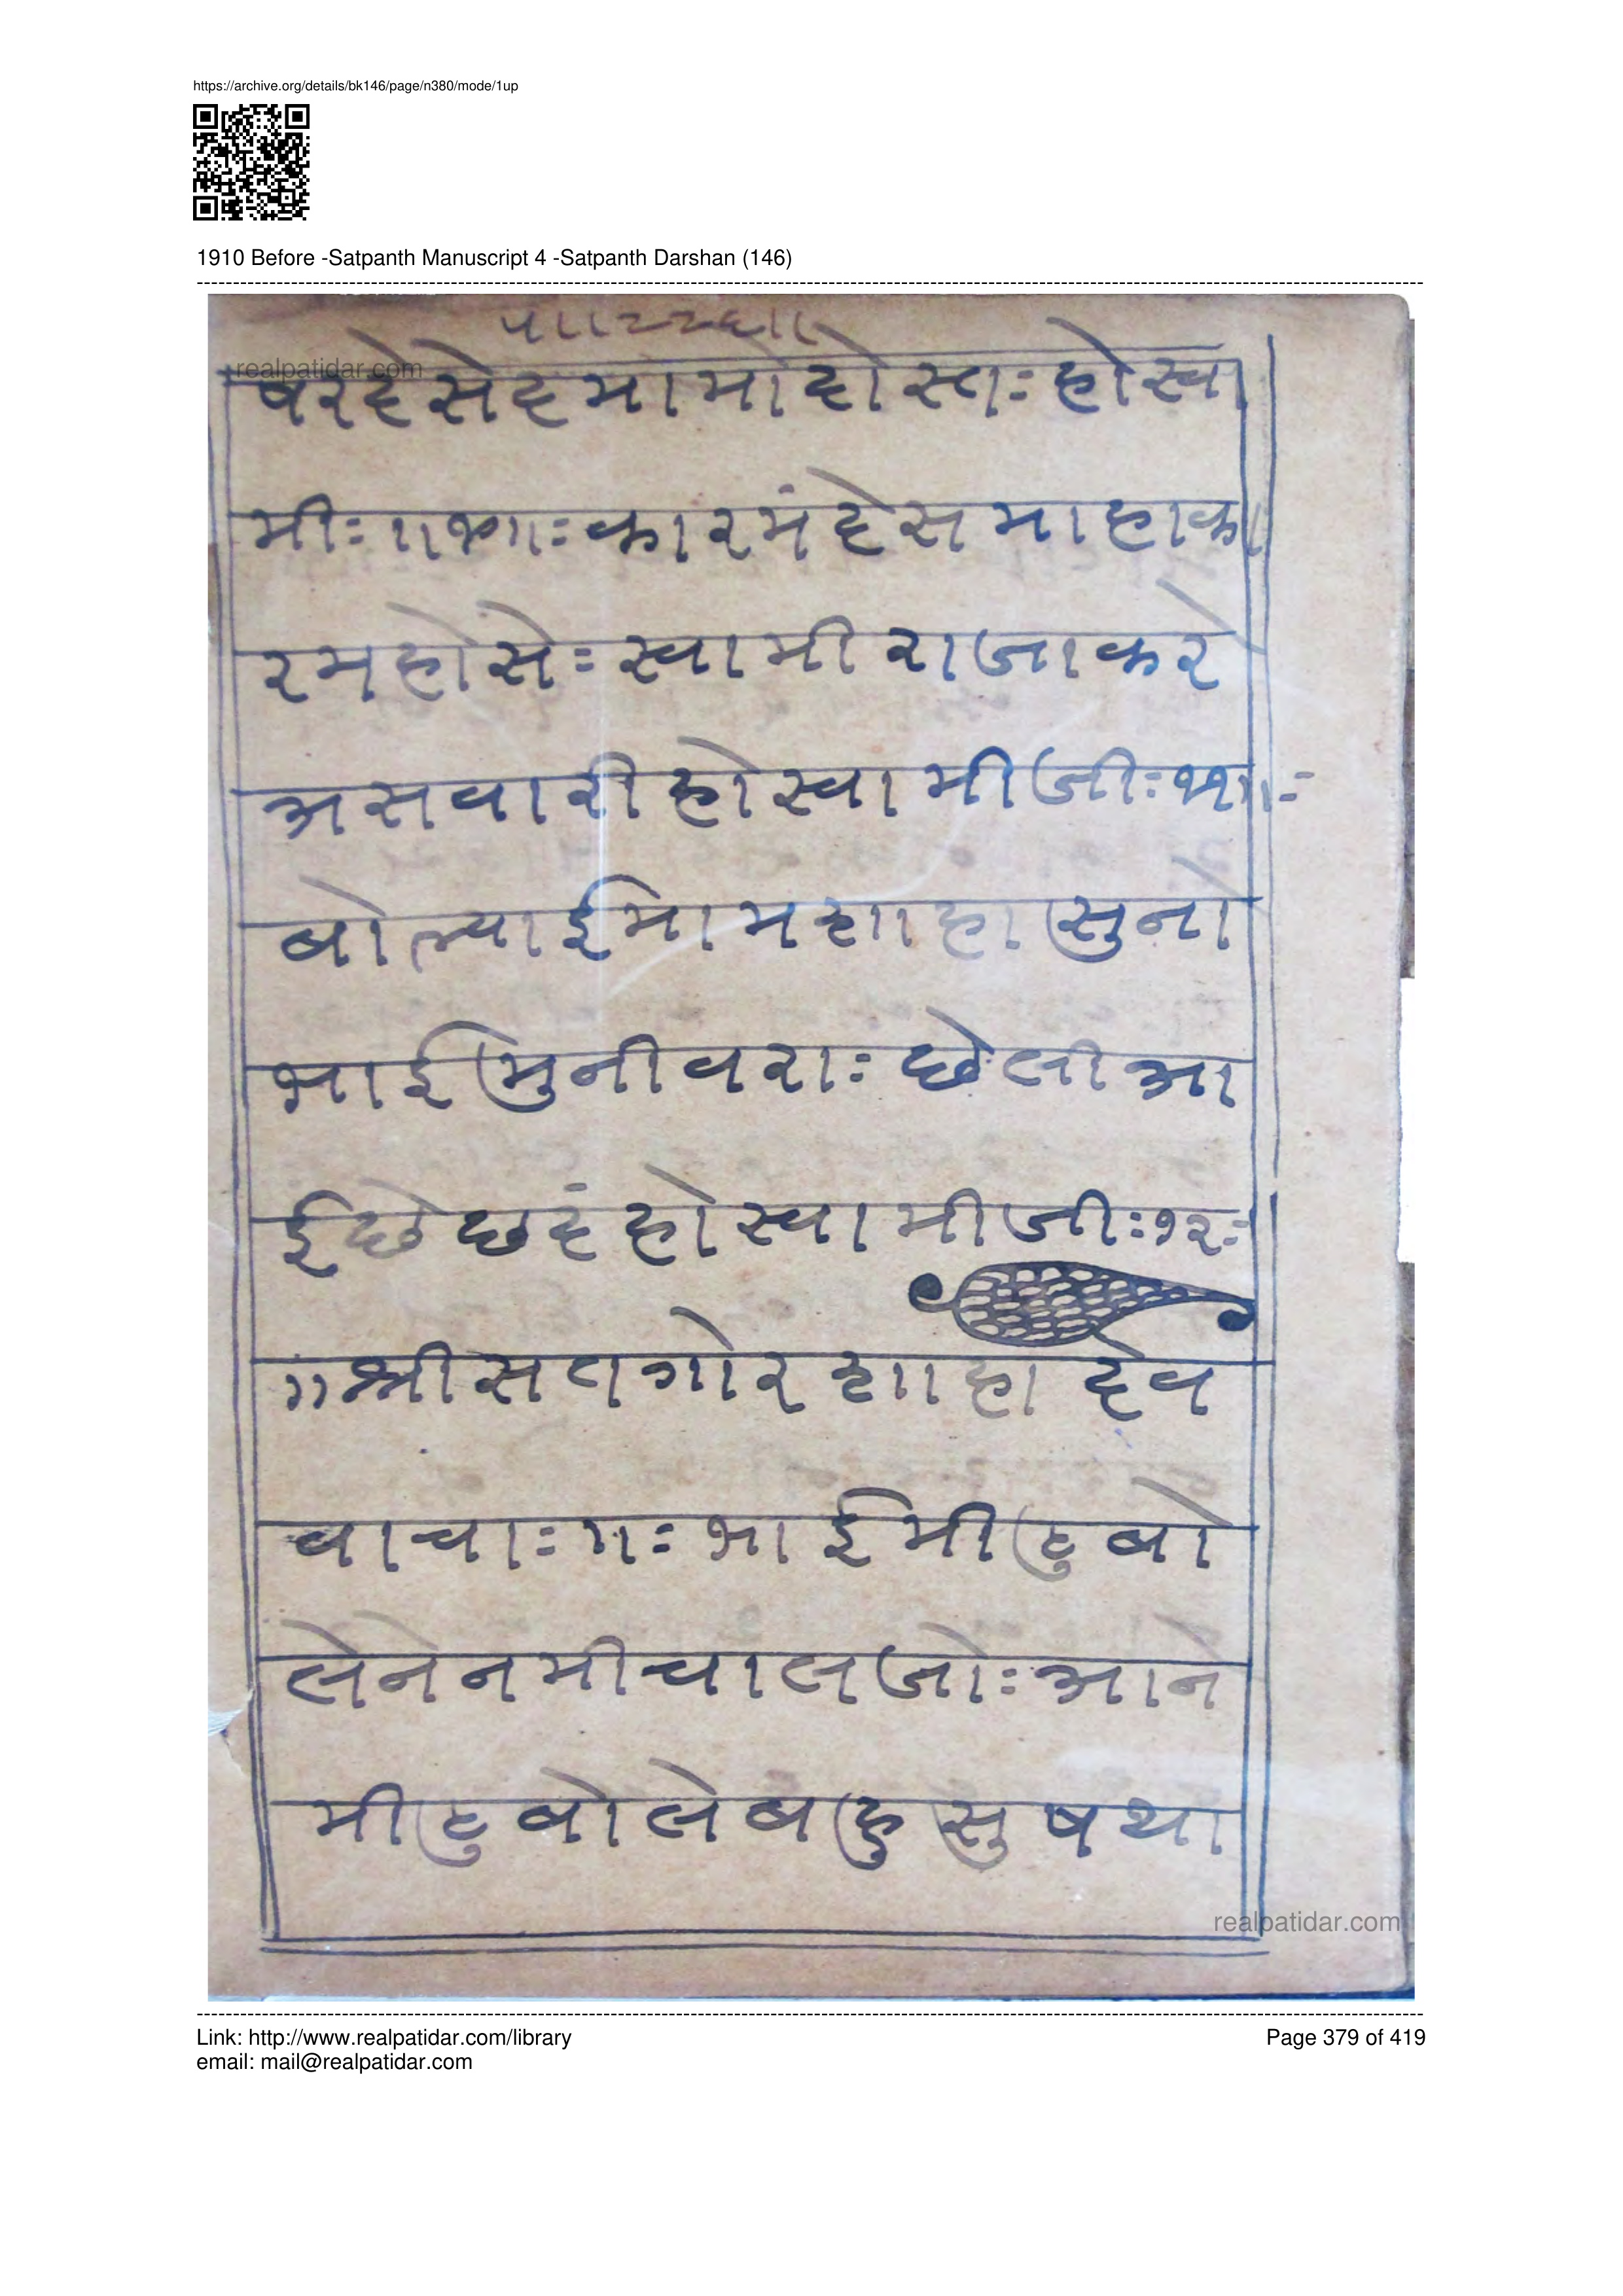 https://archive.org/details/bk146/page/n380/mode/1up
1910 Before -Satpanth Manuscript 4 -Satpanth Darshan (146)
realpatidar.com
षरदेसेदमामोदोस्तः होस्वा
मीः॥ कारमंदेसमाहाका
रमहोसेः स्वामी राजाकरे
असवारी हो स्वामीजीः ११॥ः
बोल्याईमामशाहा सुनो
भाई मुनीवराः छेली आ
ई छे छदं हो स्वामीजीः १२ः
॥ श्री सतगोर शाहा देव
वाचाः ॥ः भाई मीठु बो
लेने नमी चालजोः आने
मीठु बोले बहु सुष था
realpatidar.com
Link: http://www.realpatidar.com/library
Page 379 of 419
email: mail@realpatidar.com